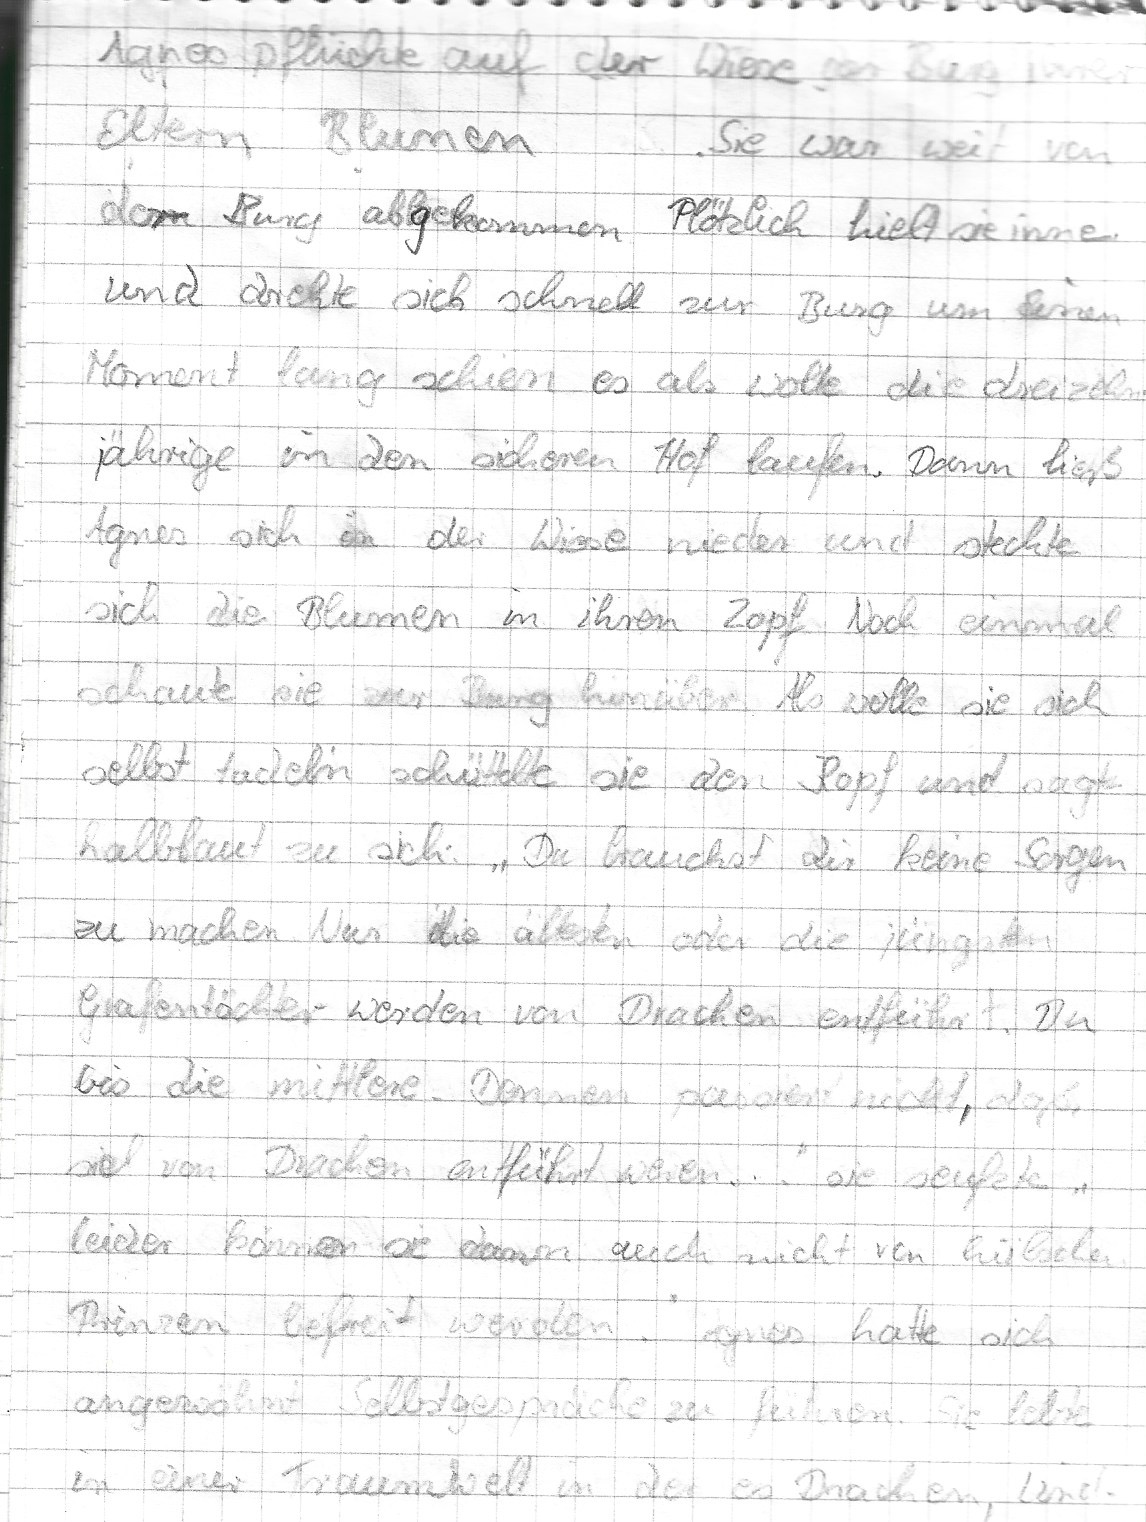 Agnes pflückte auf der Wiese der Burg ihrer
Eltern Blumen. Sie war weit von
dem Burg abgekommen Plötzlich hielt sie inne.
und drehte sich schnell zur Burg um einen
Moment lang schien es als wolle die dreizehn
jährige in den sicheren Hof laufen. Dann ließ
Agnes sich in der Wiese nieder und steckte
sich die Blumen in ihren Zopf Noch einmal
schaute sie zur Burg hinüber. Als wolle sie sich
selbst tadeln schüttelte sie den Kopf und sagte
halblaut zu sich: „Du brauchst dir keine Sorgen
zu machen Nur die ältesten oder die jüngsten
Grafentöchter werden von Drachen entführt. Du
bis die mittlere. Dennen passiert nicht, daß
sie von Drachen entführt weren..." sie seufzte „
leider können sie dann auch nicht von hübschen
Prinzen befreit werden." Agnes hatte sich
angewöhnt Selbstgespräche zu führen. Sie lebte
in einer Traumwelt in der es Drachen, Lind-